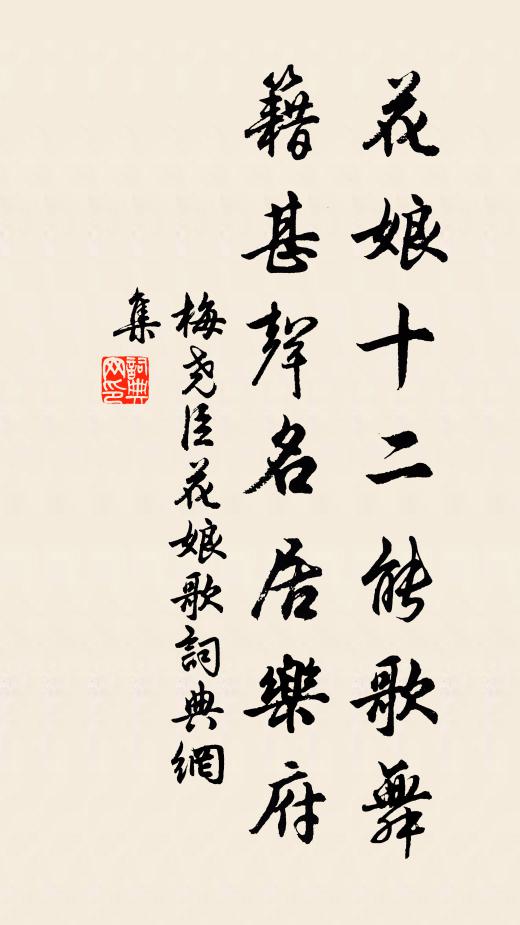 花娘十二能歌舞
籍甚聲名居樂府
梅堯臣花娘歌詞典網
集
詞典網印